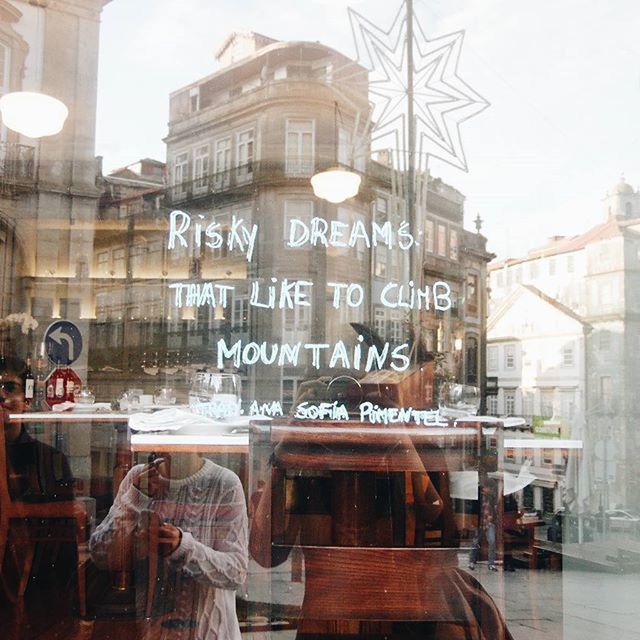 RisKy DREAMS.
THAT LiKE TO CLiMB
MOUNTAiNS
ANA SOFiA PiMENTEL.